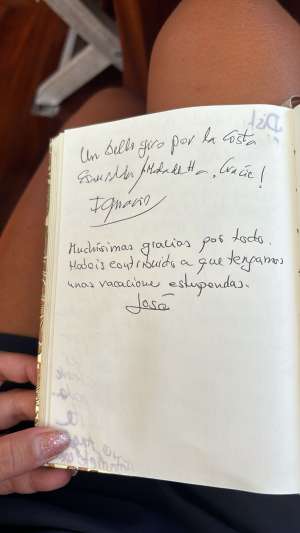 Un bello giro por la Costa
Esmeralda / Maddalena, Grazie!
Ignacio
Muchísimas gracias por todo.
Habeis contribuido a que tengamos
unas vacacione estupendas.
José